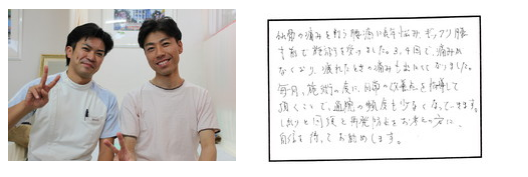 仙骨の痛みを伴う腰痛に長年悩み、ギックリ腰
を機に施術を受けました。3、4回で、痛みが
なくなり、疲れたときの痛みも出なくなりました。
毎月、施術の度に、日常の改善点を指導して
頂くことで、通院の頻度も少なくなっています。
しっかりと回復と再発防止をお考えの方に、
自信を持ってお勧めします。